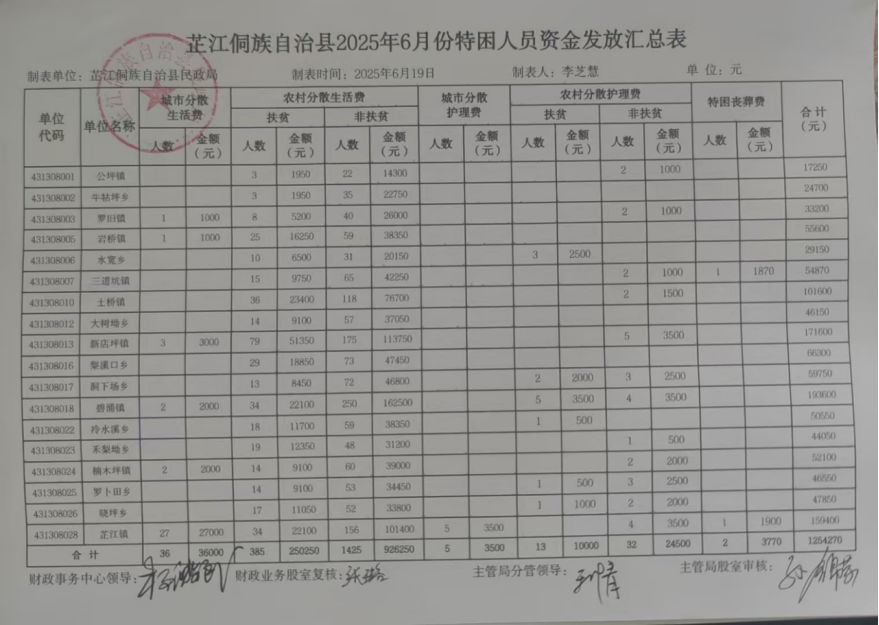 芷江侗族自治县2025年6月份特困人员资金发放汇总表
制表单位：芷江侗族自治县民政局 制表时间：2025年6月19日 制表人：李芝慧 单 位：元
单位代码 单位名称 城市分散生活费 农村分散生活费 城市分散护理费 农村分散护理费 特困丧葬费 合计（元）
扶贫 非扶贫 扶贫 非扶贫
人数 金额（元） 人数 金额（元） 人数 金额（元） 人数 金额（元） 人数 金额（元） 人数 金额（元） 人数 金额（元）
431308001 公坪镇 3 1950 22 14300 2 1000 17250
431308002 牛牯坪乡 3 1950 35 22750 24700
431308003 罗旧镇 1 1000 8 5200 40 26000 2 1000 33200
431308005 岩桥镇 1 1000 25 16250 59 38350 55600
431308006 水宽乡 10 6500 31 20150 3 2500 29150
431308007 三道坑镇 15 9750 65 42250 2 1000 1 1870 54870
431308010 土桥镇 36 23400 118 76700 2 1500 101600
431308012 大树坳乡 14 9100 57 37050 46150
431308013 新店坪镇 3 3000 79 51350 175 113750 5 3500 171600
431308016 梨溪口乡 29 18850 73 47450 66300
431308017 洞下场乡 13 8450 72 46800 2 2000 3 2500 59750
431308018 碧涌镇 2 2000 34 22100 250 162500 5 3500 4 3500 193600
431308022 冷水溪乡 18 11700 59 38350 1 500 50550
431308023 禾梨坳乡 19 12350 48 31200 1 500 44050
431308024 楠木坪镇 2 2000 14 9100 60 39000 2 2000 52100
431308025 罗卜田乡 14 9100 53 34450 1 500 3 2500 46550
431308026 晓坪乡 17 11050 52 33800 1 1000 2 2000 47850
431308028 芷江镇 27 27000 34 22100 156 101400 5 3500 4 3500 1 1900 159400
合 计 36 36000 385 250250 1425 926250 5 3500 13 10000 32 24500 2 3770 1254270
财政事务中心领导： 财政业务股室复核： 主管局分管领导： 主管局股室审核：